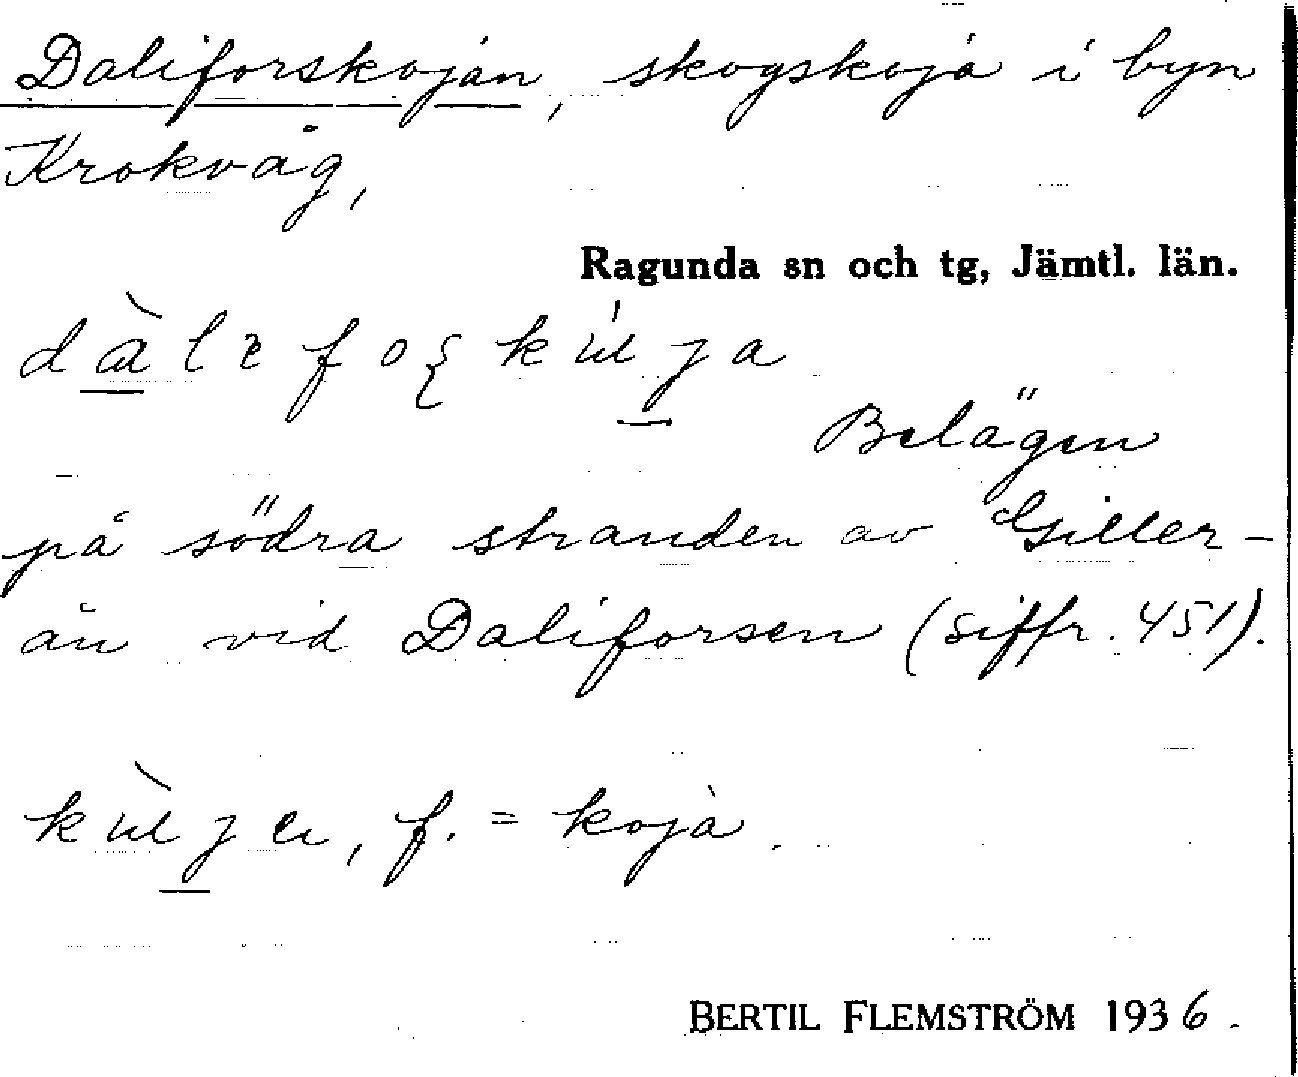 Daliforskojan, skogskoja i byn
Krokvåg,
Ragunda sn och tg, Jämtl. län.
Belägen
på södra stranden av Giller-
ån vid Daliforsen (siffr. 451).
f. = koja.
BERTIL FLEMSTRÖM 1936.